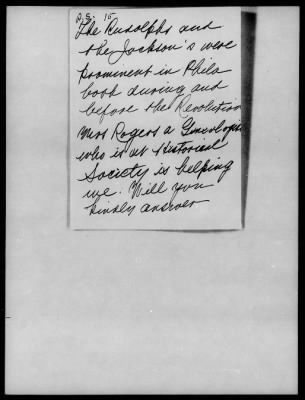 P.S. 15
The Rudolphs and
the Jackson's were
prominent in Phila
both during and
before the Revolution
Mrs Rogers a Geneologist
who is at Historical
Society is helping
me. Will you
kindly answer